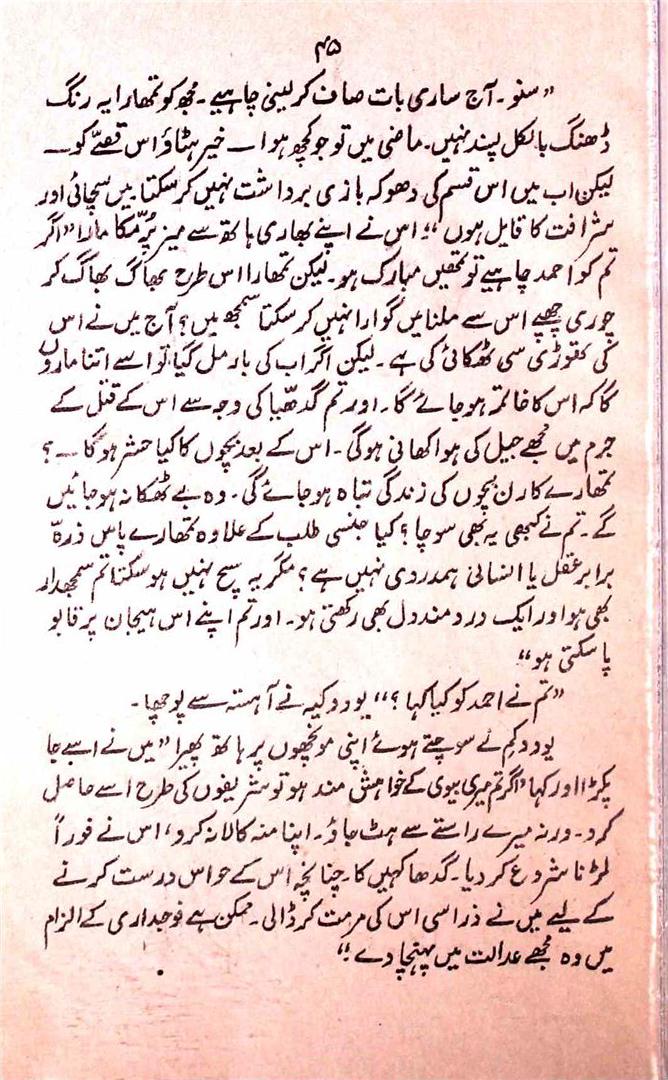 ۴۵
”سنو۔ آج ساری بات صاف کر لینی چاہیے۔ مجھ کو تمھارا یہ رنگ
ڈھنگ بالکل پسند نہیں۔ ماضی میں تو جو کچھ ہوا — خیر ہٹاؤ اس قصے کو —
لیکن اب میں اس قسم کی دھوکہ بازی برداشت نہیں کر سکتا۔ میں سچائی اور
شرافت کا قایل ہوں“؛ اس نے اپنے بھاری ہاتھ سے میز پر مکّا مارا ”اگر
تم کو احمد چاہیے تو تمھیں مبارک ہو۔ لیکن تمھارا اس طرح بھاگ بھاگ کر
چوری چھپے اس سے ملنا میں گوارا نہیں کر سکتا سمجھ میں؟ آج میں نے اس
کی تھوڑی سی ٹھکائی کی ہے۔ لیکن اگر اب کی بار مل گیا تو اسے اتنا ماروں
گا کہ اس کا خاتمہ ہو جائے گا۔ اور تم گدھیا کی وجہ سے اس کے قتل کے
جرم میں مجھے جیل کی ہوا کھانی ہوگی۔ اس کے بعد بچوں کا کیا حشر ہو گا —؟
تمھارے کارن بچوں کی زندگی تباہ ہو جائے گی۔ وہ بے ٹھکانہ ہو جائیں
گے۔ تم نے کبھی یہ بھی سوچا؟ کیا جنسی طلب کے علاوہ تمھارے پاس ذرہ
برابر عقل یا انسانی ہمدردی نہیں ہے؟ مگر یہ سچ نہیں ہو سکتا تم سمجھدار
بھی ہو اور ایک درد مند دل بھی رکھتی ہو۔ اور تم اپنے اس ہیجان پر قابو
پا سکتی ہو“
”تم نے احمد کو کیا کہا؟“ یودوکیہ نے آہستہ سے پوچھا۔
یودوکم نے سوچتے ہوئے اپنی مونچھوں پر ہاتھ پھیرا ”میں نے اسے جا
پکڑا اور کہا ’اگر تم میری بیوی کے خواہش مند ہو تو شریفوں کی طرح اسے حاصل
کرو۔ ورنہ میرے راستے سے ہٹ جاؤ۔ اپنا منہ کالا نہ کرو‘، اس نے فوراً
لڑنا شروع کر دیا۔ گدھا کہیں کا۔ چنانچہ اس کے حواس درست کرنے
کے لیے میں نے ذرا سی اس کی مرمت کر ڈالی۔ ممکن ہے فوجداری کے الزام
میں وہ مجھے عدالت میں پہنچا دے۔“